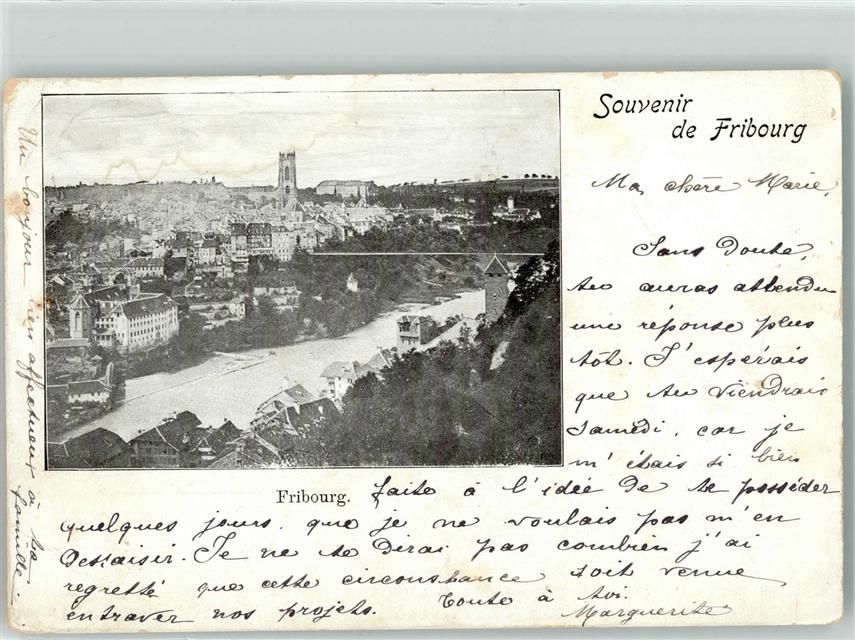 Souvenir
de Fribourg
Ma chère Marie,
Sans Doute,
tu auras attendu
une réponse plus
tôt. J'espérais
que tu viendrais
Samedi, car je
m'étais si bien
Fribourg.
faite à l'idée de te posséder
quelques jours, que je ne voulais pas m'en
Dessaisir. Je ne te Dirai pas combien j'ai
regretté que cette circonstance soit venue
entraver nos projets. Toute à toi.
Marguerite
Un bonjour bien affectueux à ta
famille.